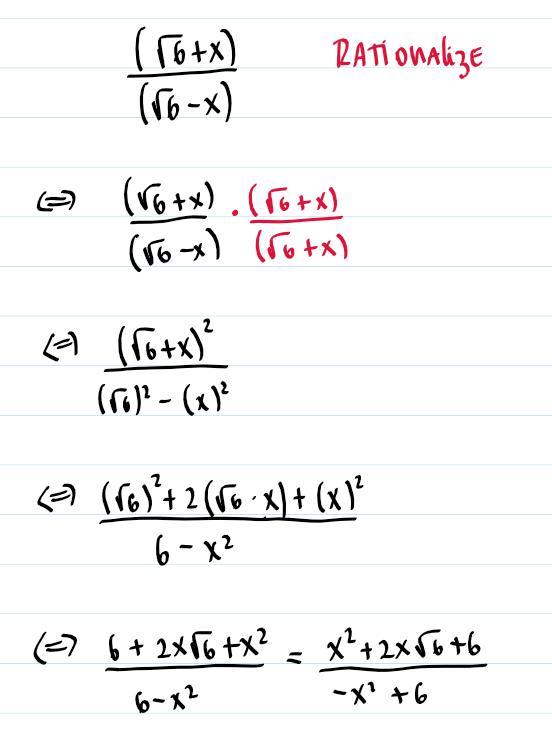 (√6+x)/(√6-x) RATIONALIZE
⇔ (√6+x)/(√6-x) · (√6+x)/(√6+x)
⇔ (√6+x)²/((√6)²-(x)²)
⇔ ((√6)²+2(√6·x)+(x)²)/(6-x²)
⇔ (6+2x√6+x²)/(6-x²) = (x²+2x√6+6)/(-x²+6)